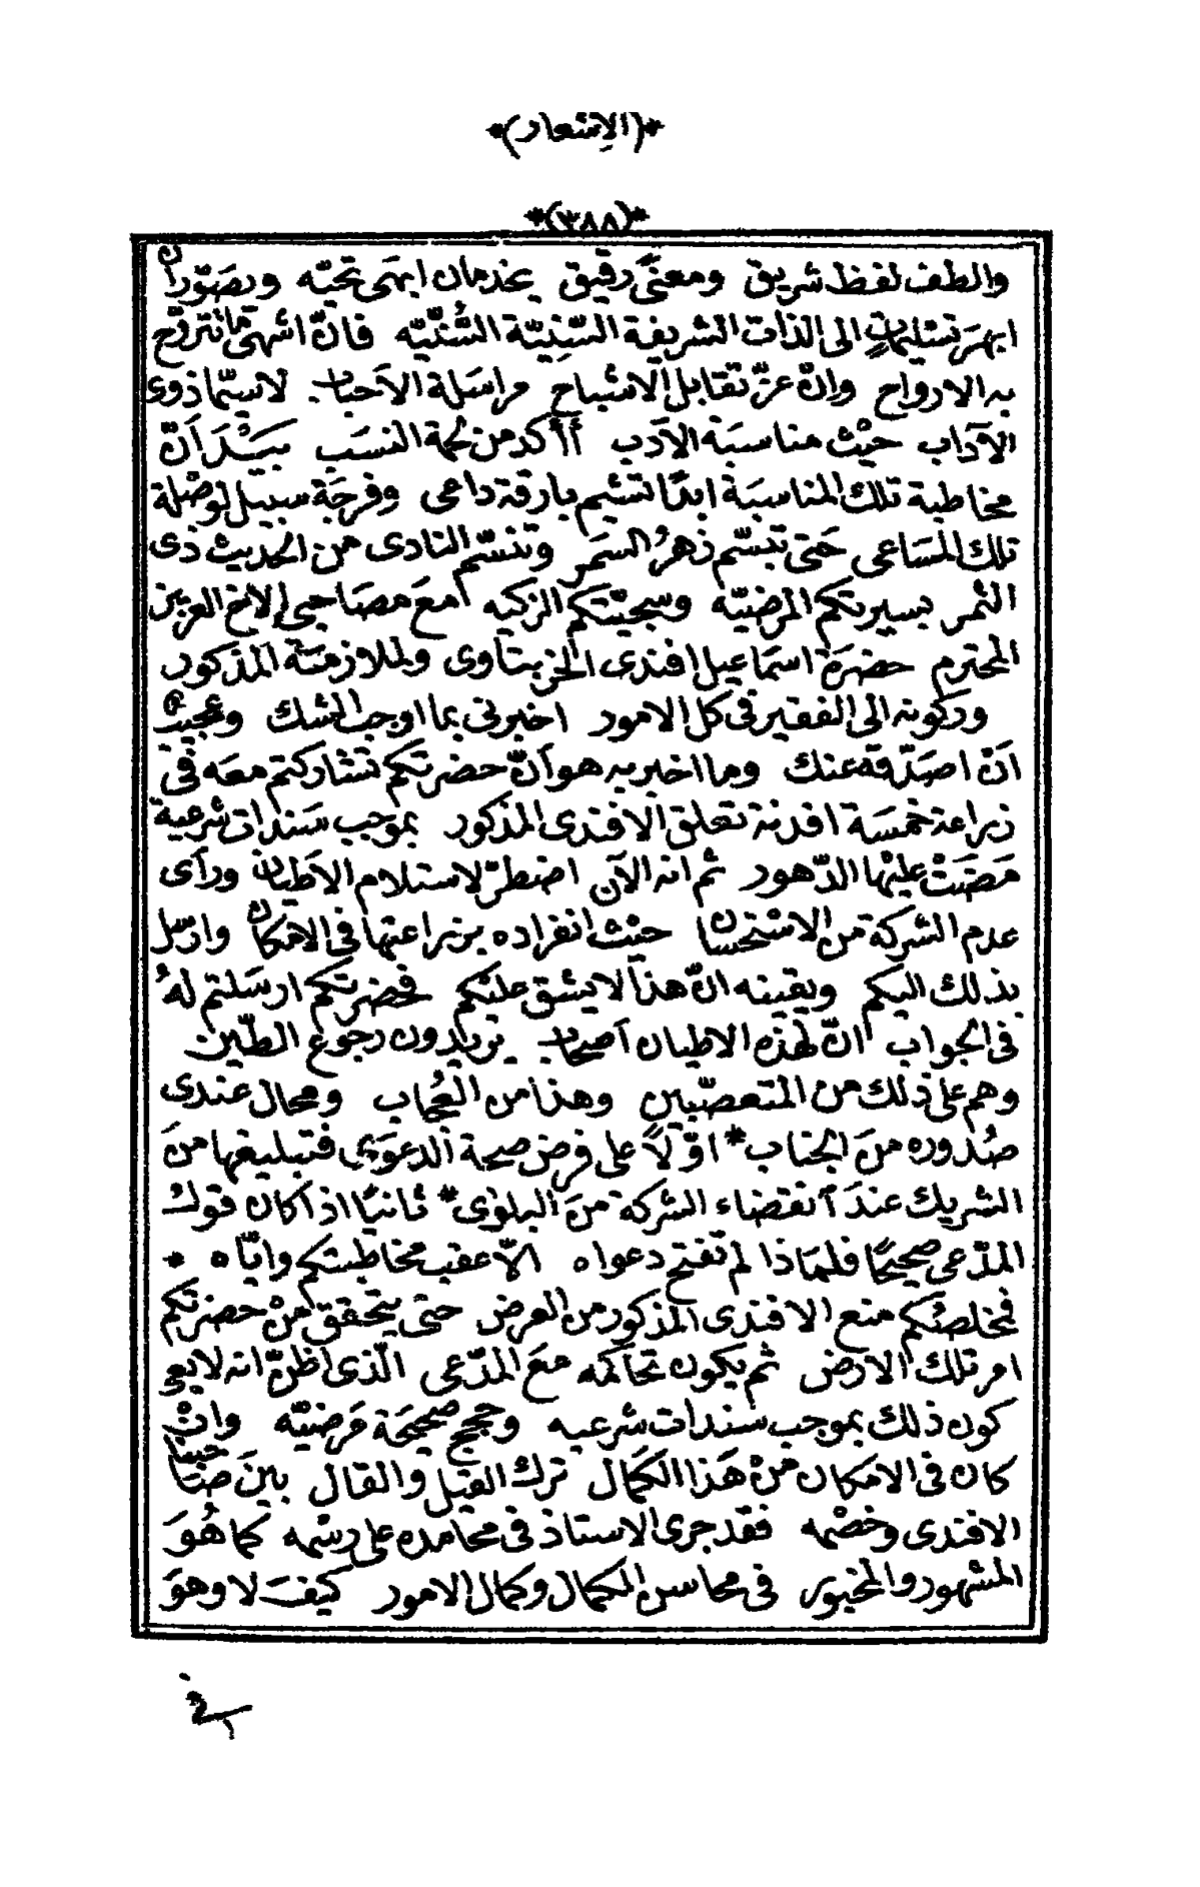 *(الإشعار)*
*(٣٨٨)*
والطف لفظ شريق ومعنًى رقيق يخدمان ابهَى تحيّه ويصَوّران
ابهَر تسليمات الى الذات الشريفة السَّنِيّة السُّنّيّه فانّ اشهى ما تتروّح
به الارواح وانْ عزّ تقابل الاشباح مراسَلة الاَحباب لاسيّما ذوى
الآداب حيْث مناسبَة الاَدب أأكد من لحمة النسَب بَيْدَ اَنّ
مخاطبة تلك المناسبَة ابدًا لتشيم بارقة داعى وفرجَة سبيل لوصْلة
تلك المسَاعى حَتى تبتسّم زهرُ السمَر وتنسّم النادى من الحديث ذى
الثمر بسيرتكم المرضيّه وسجيّتكم الزكيه امعَ مصَاحبى الاخ العزيز
المحترم حضرَة اسمَاعيل افندى الخربتاوى ولملازمتَه المذكور
وركونه الى الفقير فى كل الامور اخبرنى بما اوجب الشك وعجبت
اَنْ اصَدّقه عنك وما اخبر به هو اَنّ حضرتكم تشاركتم معَه فى
زراعة خمسَة افدنة تعلق الافندى المذكور بموجب سَندات شرعية
مَضَتْ عليْها الدّهور ثم انه الآن اضطرّ لاستلام الاَطيان ورأى
عدم الشركة من الاسْتحسان حيْث انفراده بزراعتها فى الامكان وارسَل
بذلك اليكم ويقينه انّ هذا لا يشق عليْكم فحضرتكم ارسَلتم لهُ
فى الجواب انّ لهذه الاطيان اَصحاب يريدون رجوع الطّين
وهم على ذلك من المتعصّبين وهذا من العُجاب ومحال عندى
صُدوره منَ الجناب * اوّلاً على فرض صحة الدعوَى فتبليغها منَ
الشريك عندَ انقضاء الشركة منَ البلوَى * ثانيًا اذا كان قول
المدّعى صحيحًا فلماذا لم تفتح دعواه الاّ عقب مخاطبتكم واياّه *
فخلصُكم منع الافندى المذكور من العرض حتى يتحقق منْ حضرتكم
امر تلك الارض ثم يكون تحاكمه معَ المدّعى الّذى اظنّ انه لا يعى
كون ذلك بموجب سَندات شرعيه وحجج صحيحَة مَرضيّه وانْ
كان فى الامكان منْ هَذا الكمال ترك القيل والقال بينَ جنابنا
الافندى وخصْمه فقد جرى الاستاذ فى محامده على رسْمه كما هُوَ
المشهور والمخبور فى محاسن الكمال وكمال الامور كيفَ لا وهوَ